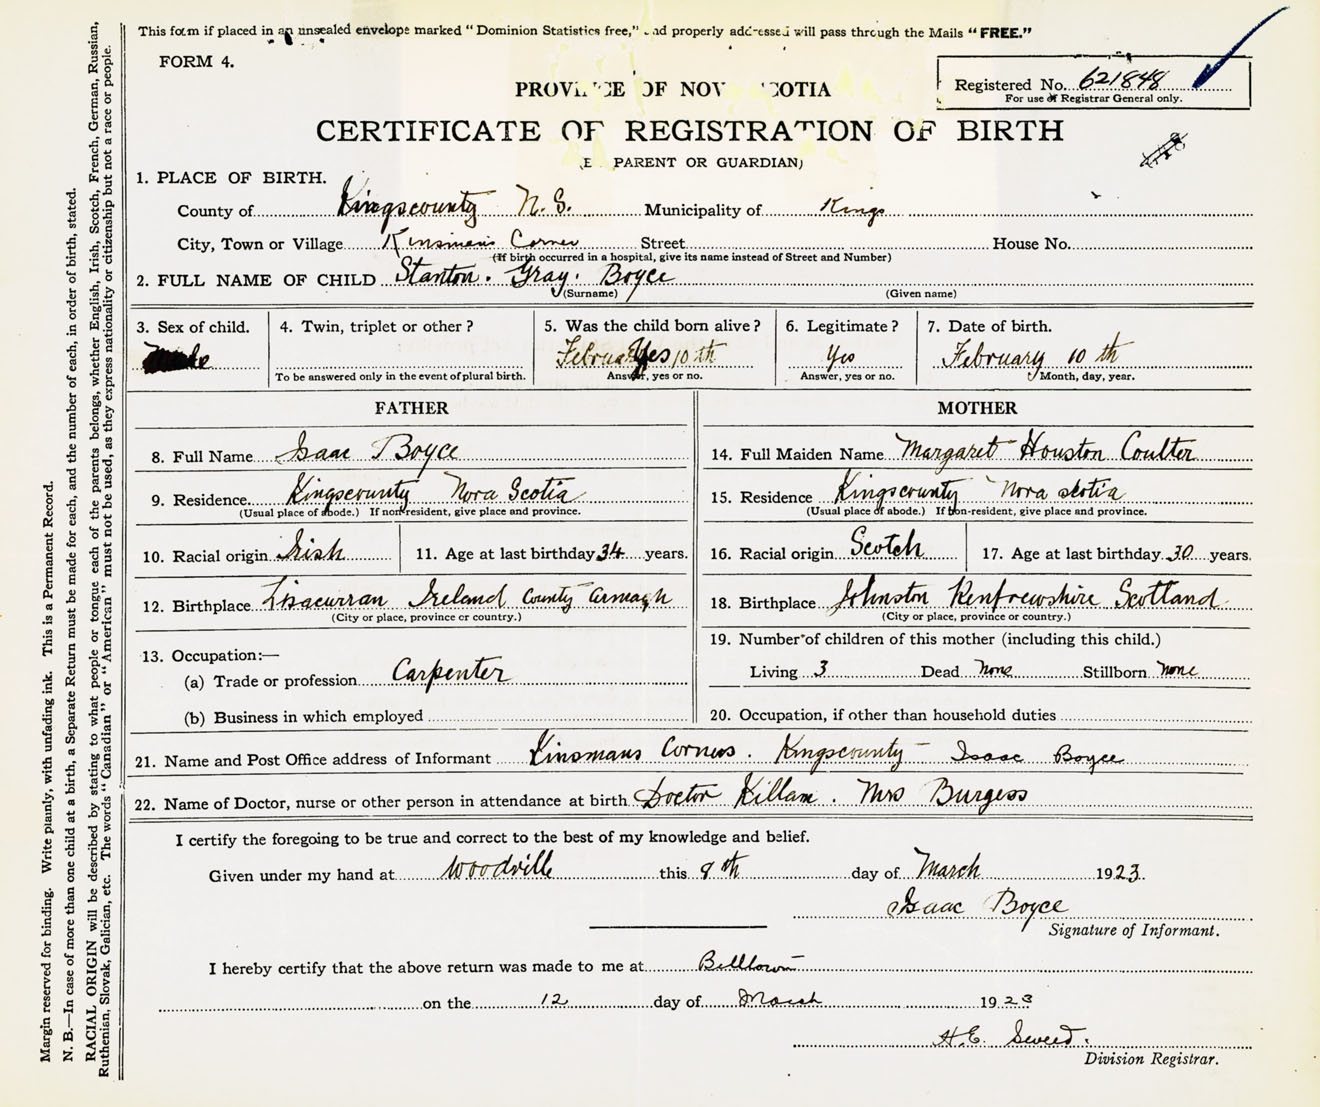 This form if placed in an unsealed envelope marked "Dominion Statistics free," and properly addressed will pass through the Mails "FREE."
FORM 4.
Registered No. 621848
For use of Registrar General only.
PROVINCE OF NOVA SCOTIA
CERTIFICATE OF REGISTRATION OF BIRTH
PARENT OR GUARDIAN)
1. PLACE OF BIRTH.
County of Kingscounty N.S. Municipality of Kings
City, Town or Village Kinsmens Corner Street House No.
(If birth occurred in a hospital, give its name instead of Street and Number)
2. FULL NAME OF CHILD Stanton. Gray. Boyce
(Surname) (Given name)
3. Sex of child. 4. Twin, triplet or other? 5. Was the child born alive? 6. Legitimate? 7. Date of birth.
February Yes 10th Yes February 10th
To be answered only in the event of plural birth. Answer, yes or no. Answer, yes or no. Month, day, year.
FATHER MOTHER
8. Full Name Isaac Boyce 14. Full Maiden Name Margaret Houston Coulter
9. Residence Kingscounty Nova Scotia 15. Residence Kingscounty Nova scotia
(Usual place of abode.) If non-resident, give place and province. (Usual place of abode.) If non-resident, give place and province.
10. Racial origin Irish 11. Age at last birthday 34 years. 16. Racial origin Scotch 17. Age at last birthday 30 years.
12. Birthplace Lisacurran Ireland County Armagh 18. Birthplace Johnston Renfrewshire Scotland
(City or place, province or country.) (City or place, province or country.)
13. Occupation:— 19. Number of children of this mother (including this child.)
(a) Trade or profession Carpenter Living 3 Dead none Stillborn none
(b) Business in which employed 20. Occupation, if other than household duties
21. Name and Post Office address of Informant Kinsmans Corners. Kingscounty Isaac Boyce
22. Name of Doctor, nurse or other person in attendance at birth Doctor Killam. Mrs Burgess
I certify the foregoing to be true and correct to the best of my knowledge and belief.
Given under my hand at Woodville this 9th day of March 1923.
Isaac Boyce
Signature of Informant.
I hereby certify that the above return was made to me at Billtown
on the 12 day of March 1923
H.E.
Division Registrar.
Margin reserved for binding. Write plainly, with unfading ink. This is a Permanent Record.
N. B.—In case of more than one child at a birth, a Separate Return must be made for each, and the number of each, in order of birth, stated.
RACIAL ORIGIN will be described by stating to what people or tongue each of the parents belongs, whether English, Irish, Scotch, French, German, Russian,
Ruthenian, Slovak, Galician, etc. The words "Canadian" or "American" must not be used, as they express nationality or citizenship but not a race or people.